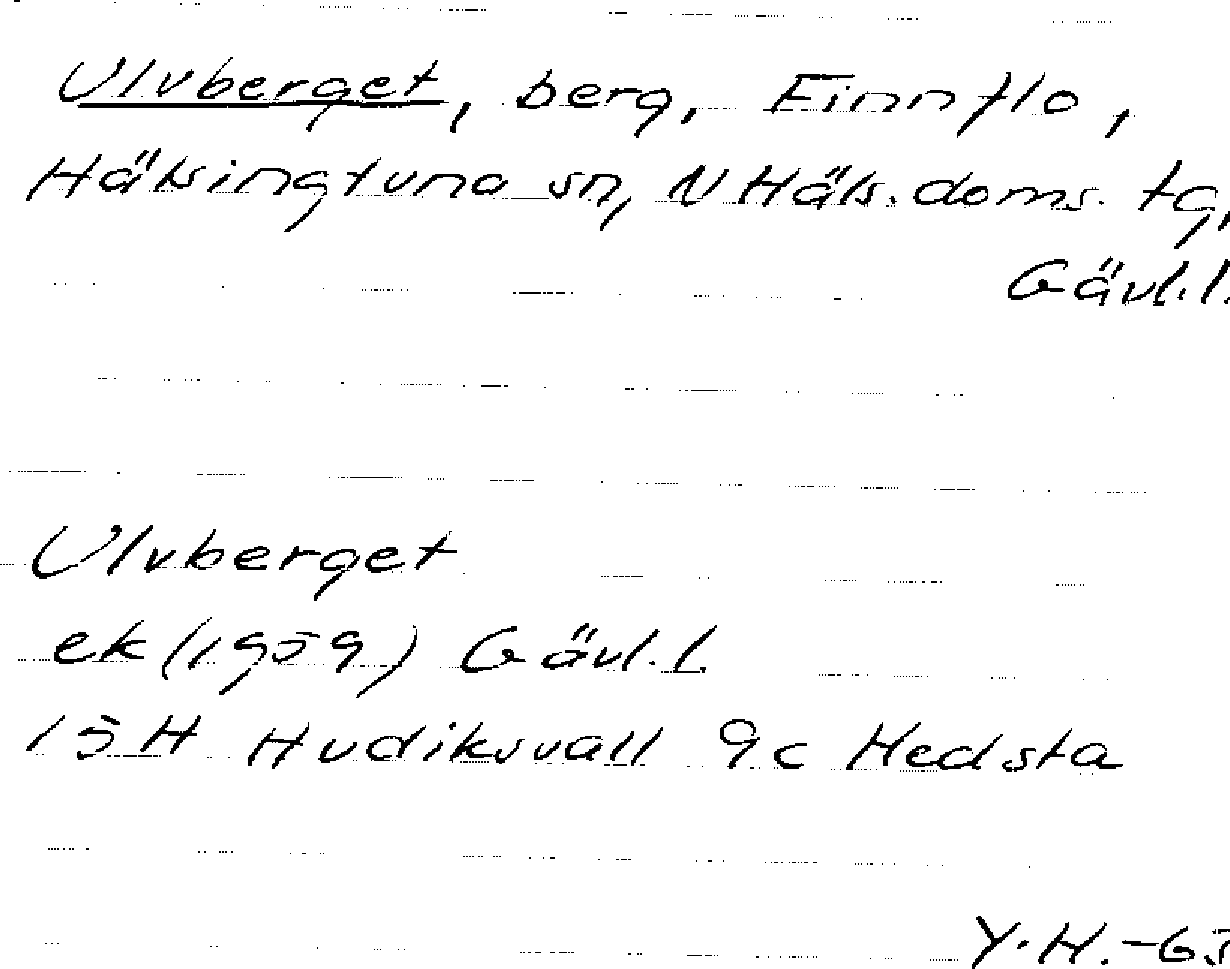 Ulvberget, berg, Finnflo,
Hälsingtuna sn, N Häls. doms. tg,
Gävl.l.
Ulvberget
ek (1959) Gävl.l.
15H Hudiksvall 9c Hedsta
Y.H.-63